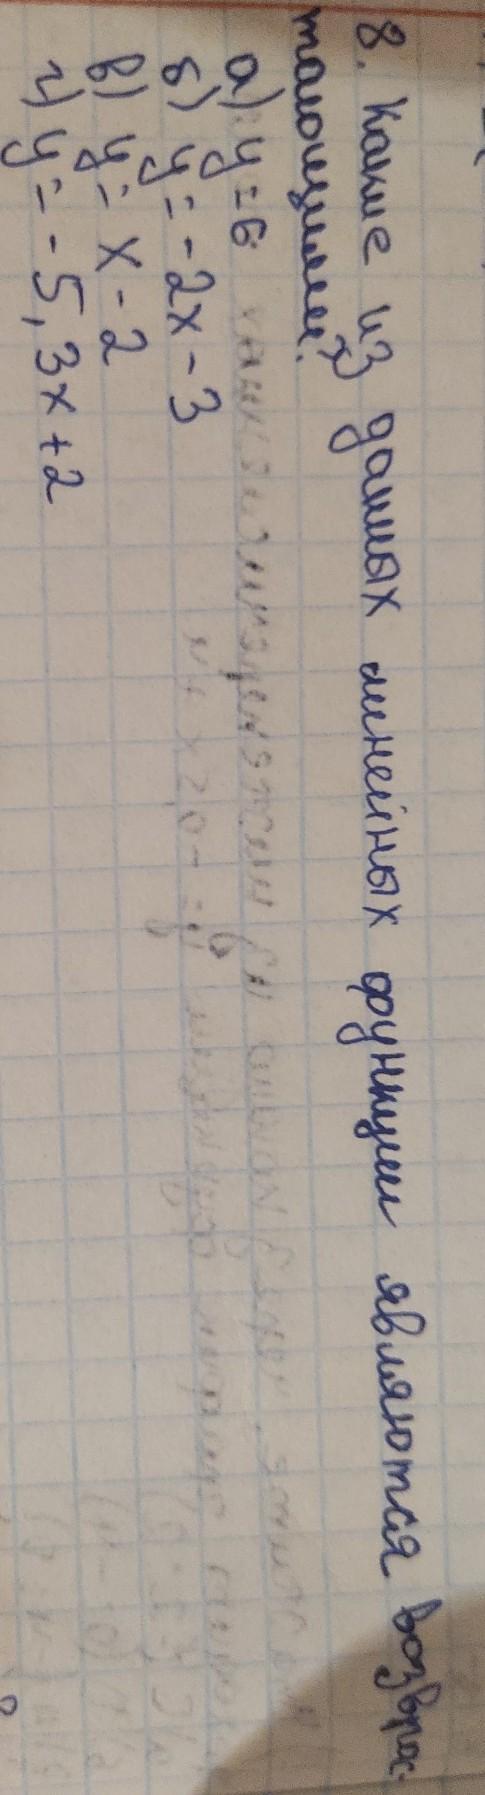 8. Какие из данных линейных функции являются возврас-
тающими?
а) y = 6
б) y = -2x - 3
в) y = x - 2
г) y = -5,3x + 2